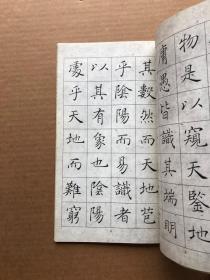 物是以窺天鑒地
庸愚皆識其端明
其數然而天地苞
乎陰陽而易識者
以其有象也陰陽
處乎天地而難窮